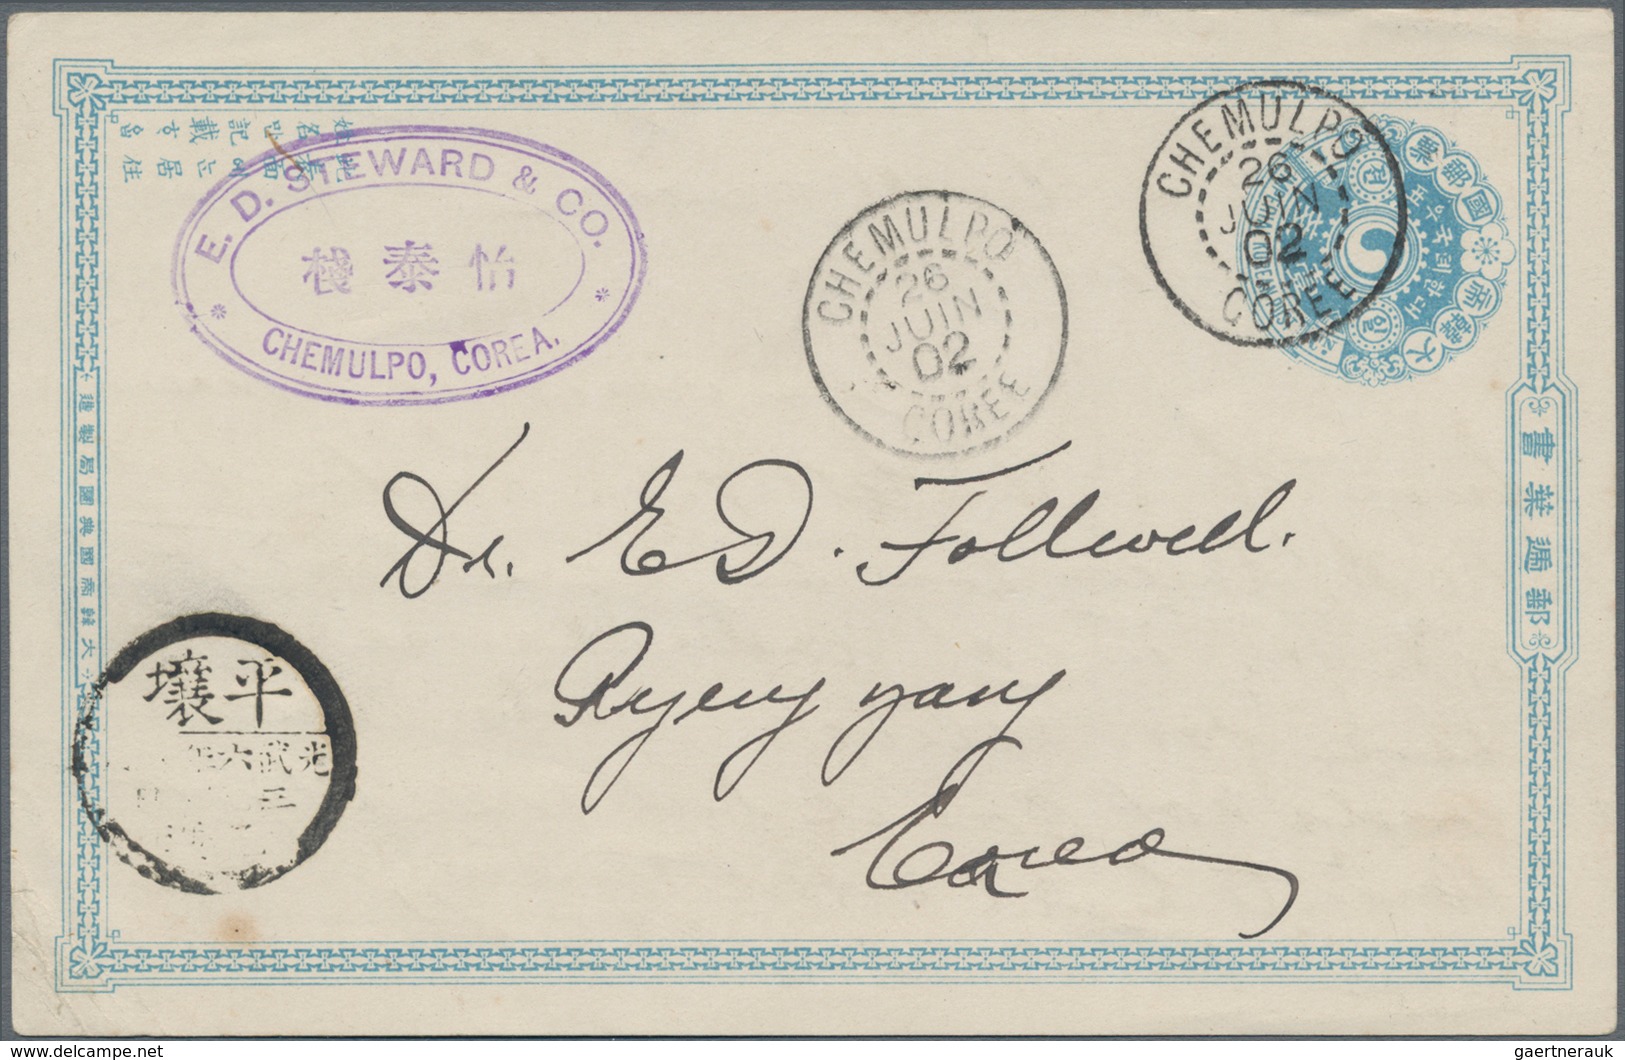 E. D. STEWARD & CO.
棧泰怡
CHEMULPO, COREA.
CHEMULPO
26
JUIN
02
COREE
CHEMULPO
26
JUIN
02
COREE
大韓帝國郵
郵遞葉書
大韓帝國典圜局製造
Dr. E D. Follwell.
Pyeng yang
Corea
壤平
光武六
三
gaertnerauk
www.delcampe.net